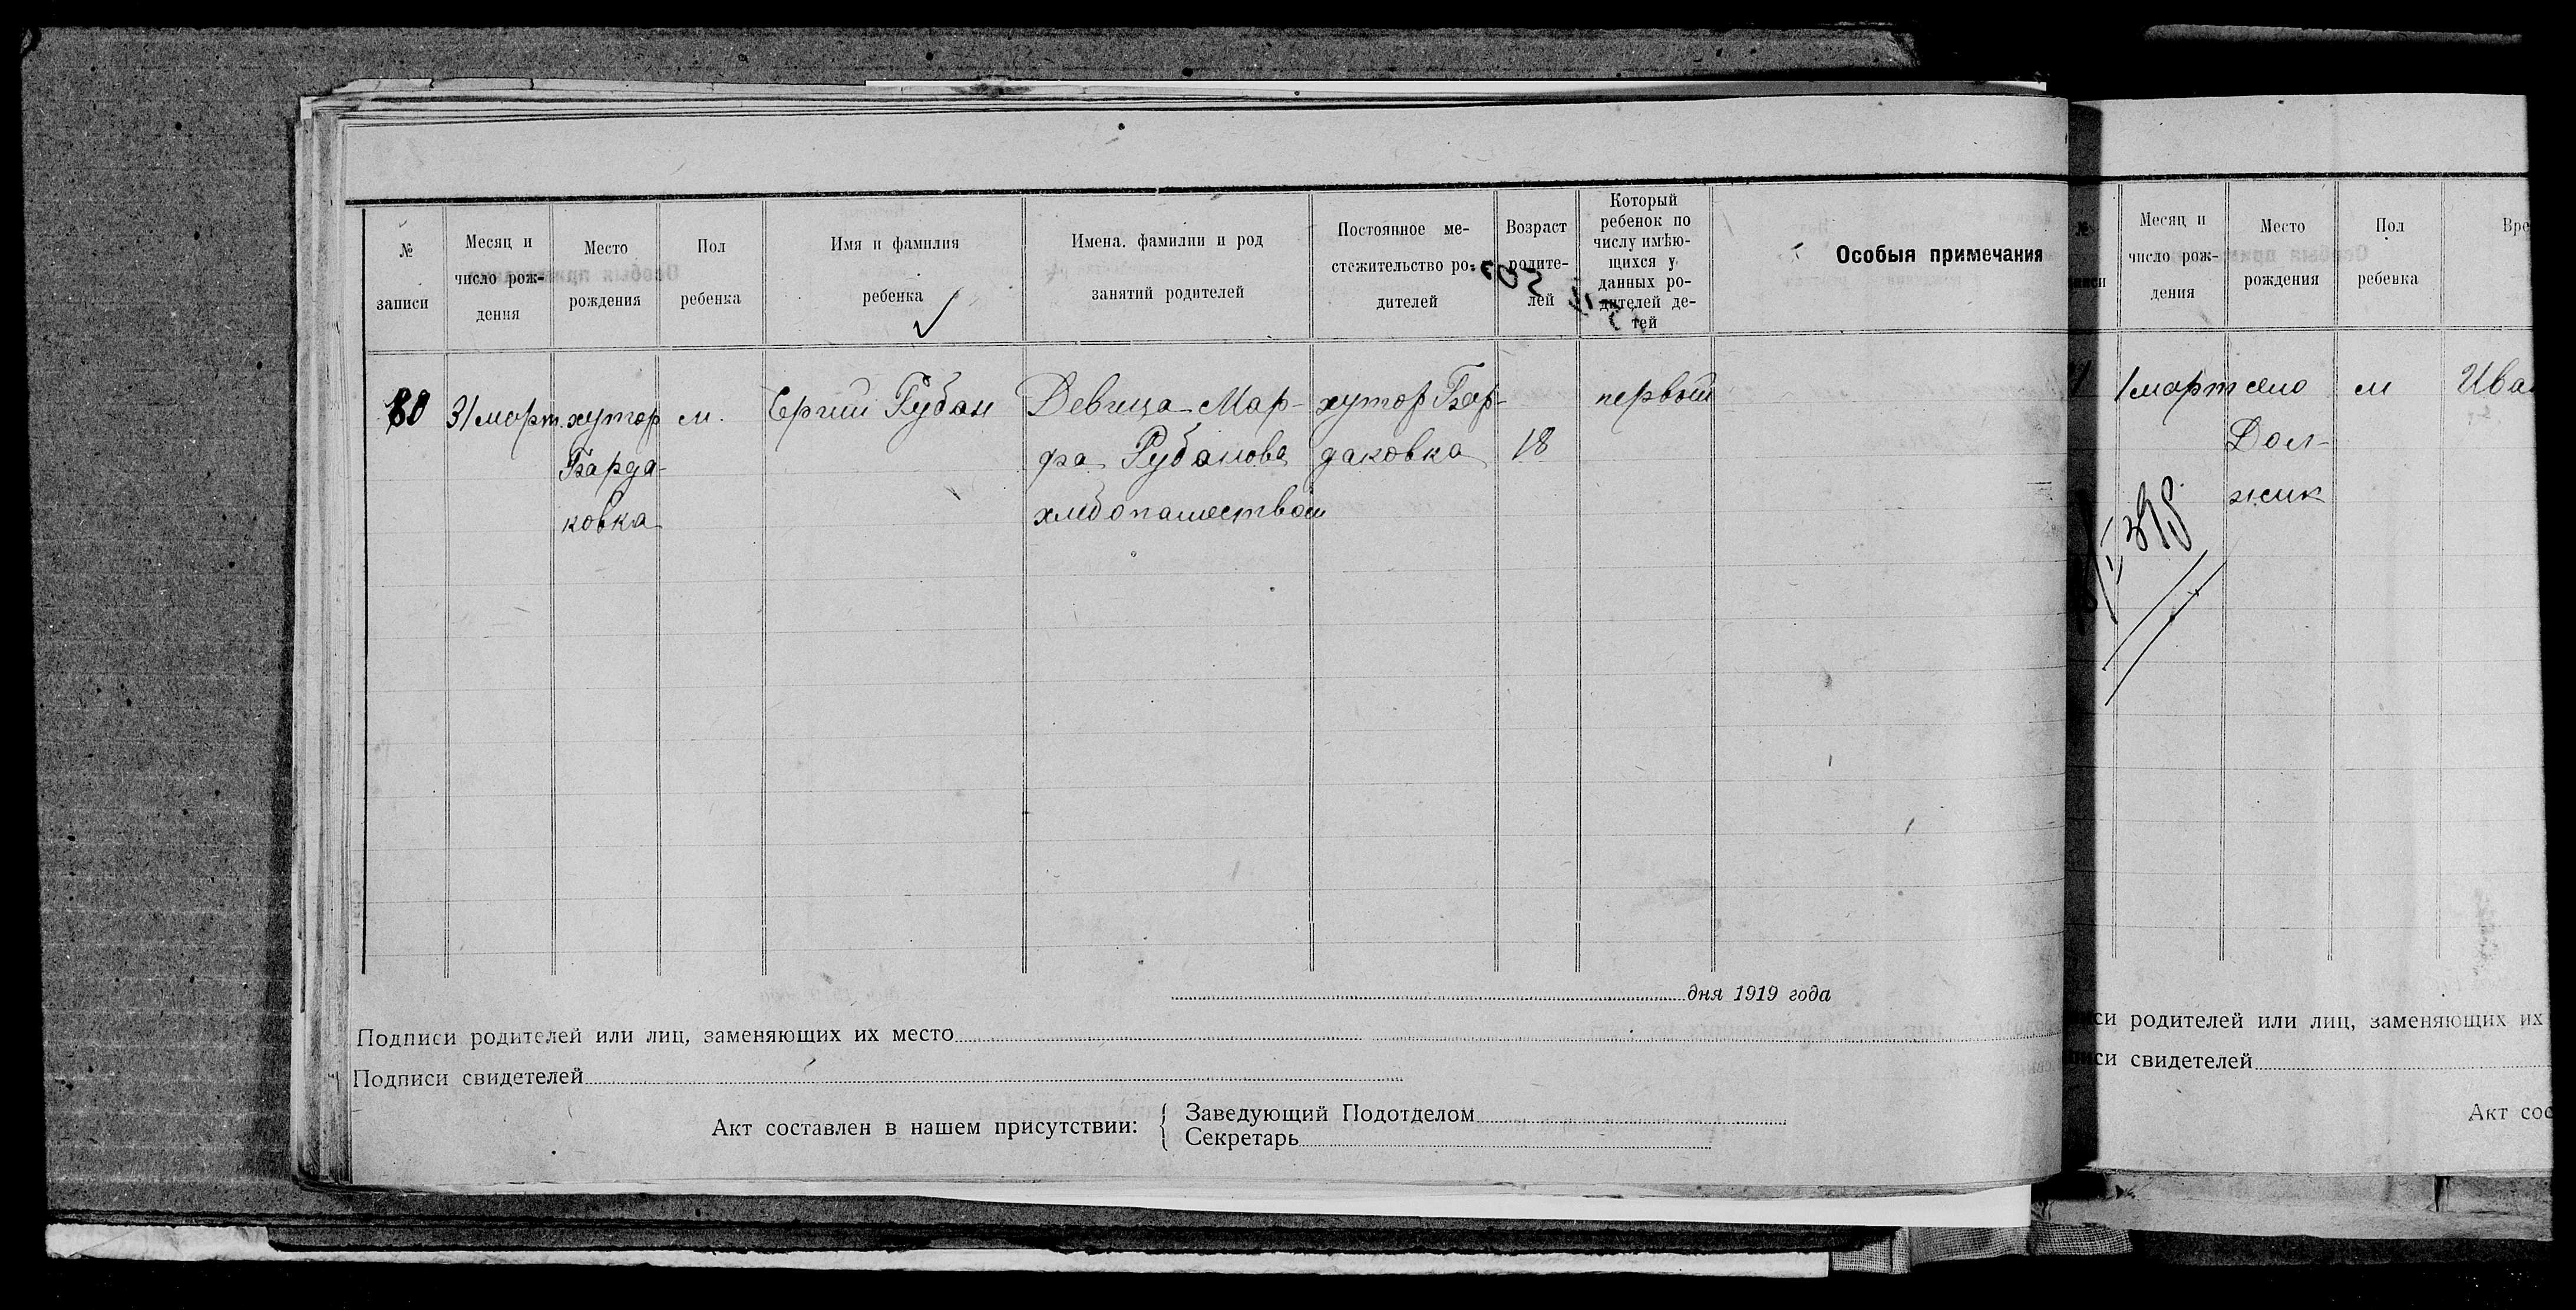 № записи
Месяц и число рождения
Место рождения
Пол ребенка
Имя и фамилия ребенка
Имена. фамилии и род занятий родителей
Постоянное местожительство родителей
Возраст родителей
Который ребенок по числу имѣющихся у данных родителей детей
Особыя примечания
80
31 март.
хутор
Барда-
ковка
м.
Ергий Рубан
Девица Мар-
фа Рубанова
хлебопашеством
хутор Бар-
даковка
18
первый
дня 1919 года
Подписи родителей или лиц, заменяющих их место
Подписи свидетелей
Акт составлен в нашем присутствии:
Заведующий Подотделом
Секретарь
№
Месяц и число рождения
Место рождения
Пол ребенка
1 март
село
Дол-
жик
м
Ива
си родителей или лиц, заменяющих их
си свидетелей
Акт сос